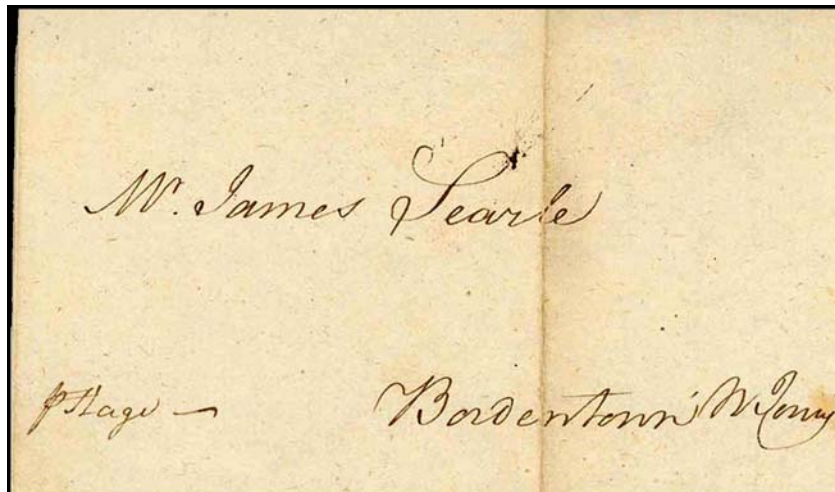 Mr. James Searle
p Stage —
Bordentown W Jersey